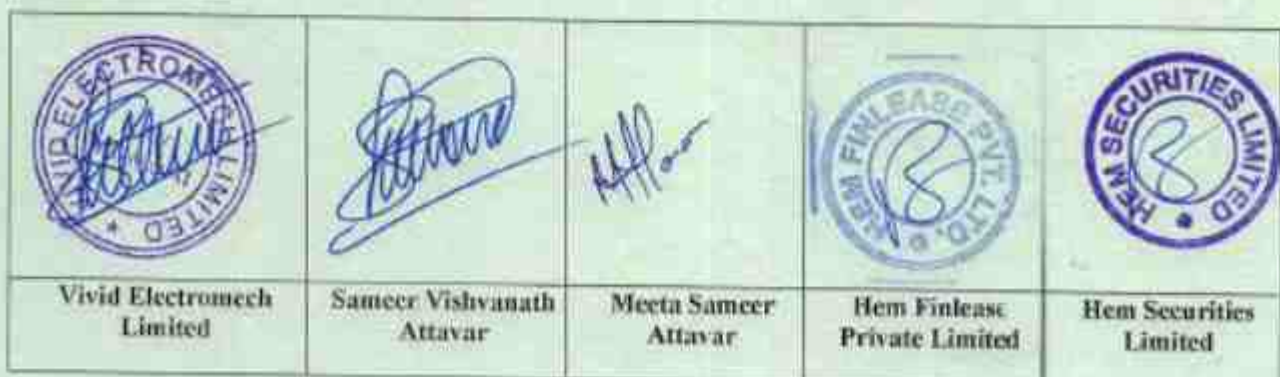 VIVID ELECTROMECH LIMITED *
HEM FINLEASE PVT. LTD. *
HEM SECURITIES LIMITED *
Vivid Electromech
Limited
Sameer Vishvanath
Attavar
Meeta Sameer
Attavar
Hem Finlease
Private Limited
Hem Securities
Limited